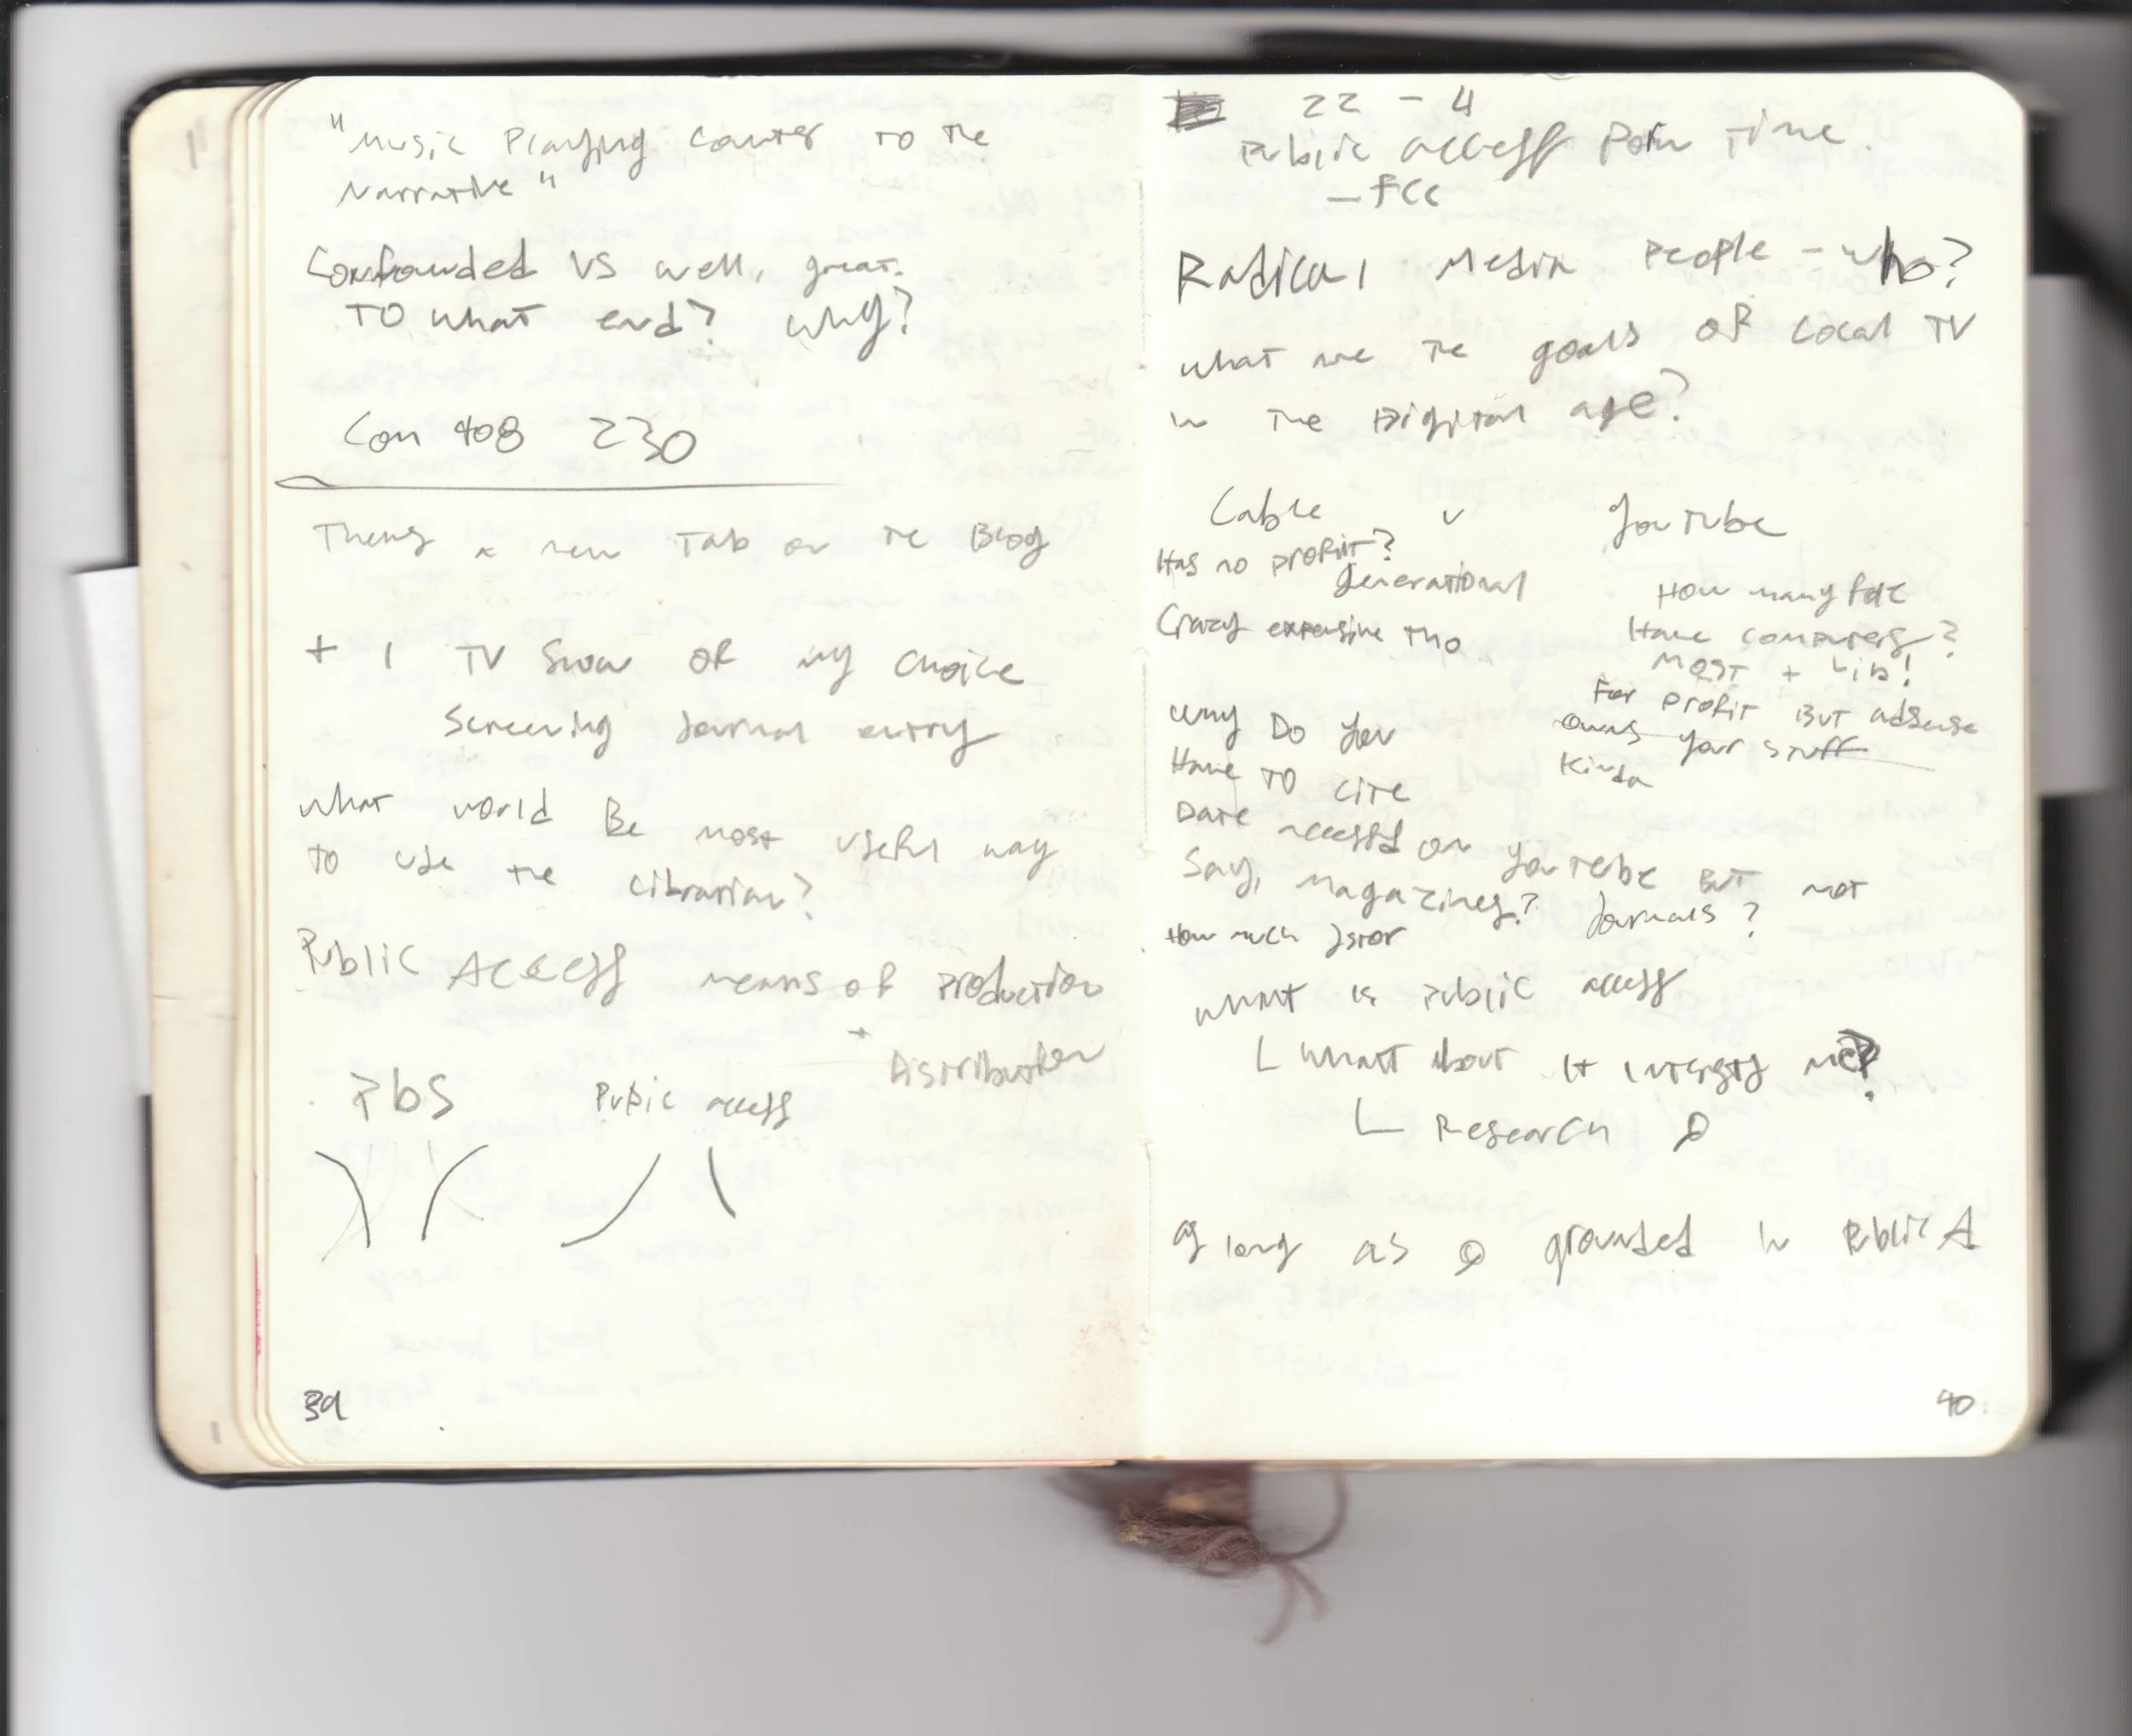 "Music Playing Counter to the
Narrative"
Confounded VS well, great.
TO what end? Why?
Con 408 230
Theres a new Tab on the Blog
+ 1 TV Show OF my choice
Screening Journal entry
What would Be most useful way
to use the Librarian?
Public Access means of production
+
Distribution
PBS Public access
39
22 - 4
Public access Time.
- FCC
Radical Media People - who?
What are the goals OF Local TV
in the Digital age?
Cable v YouTube
Has no profit?
Generational
Crazy expensive tho
How many
Have computers?
Most + Lib!
For profit But adsense
owns your stuff
Kinda
Why Do you
Have TO cite
Date accessed on YouTube But not
Say, Magazines? Journals?
How much Jstor
What is Public access
L What about It interests me?
L Research
as long as grounded in Public A
40